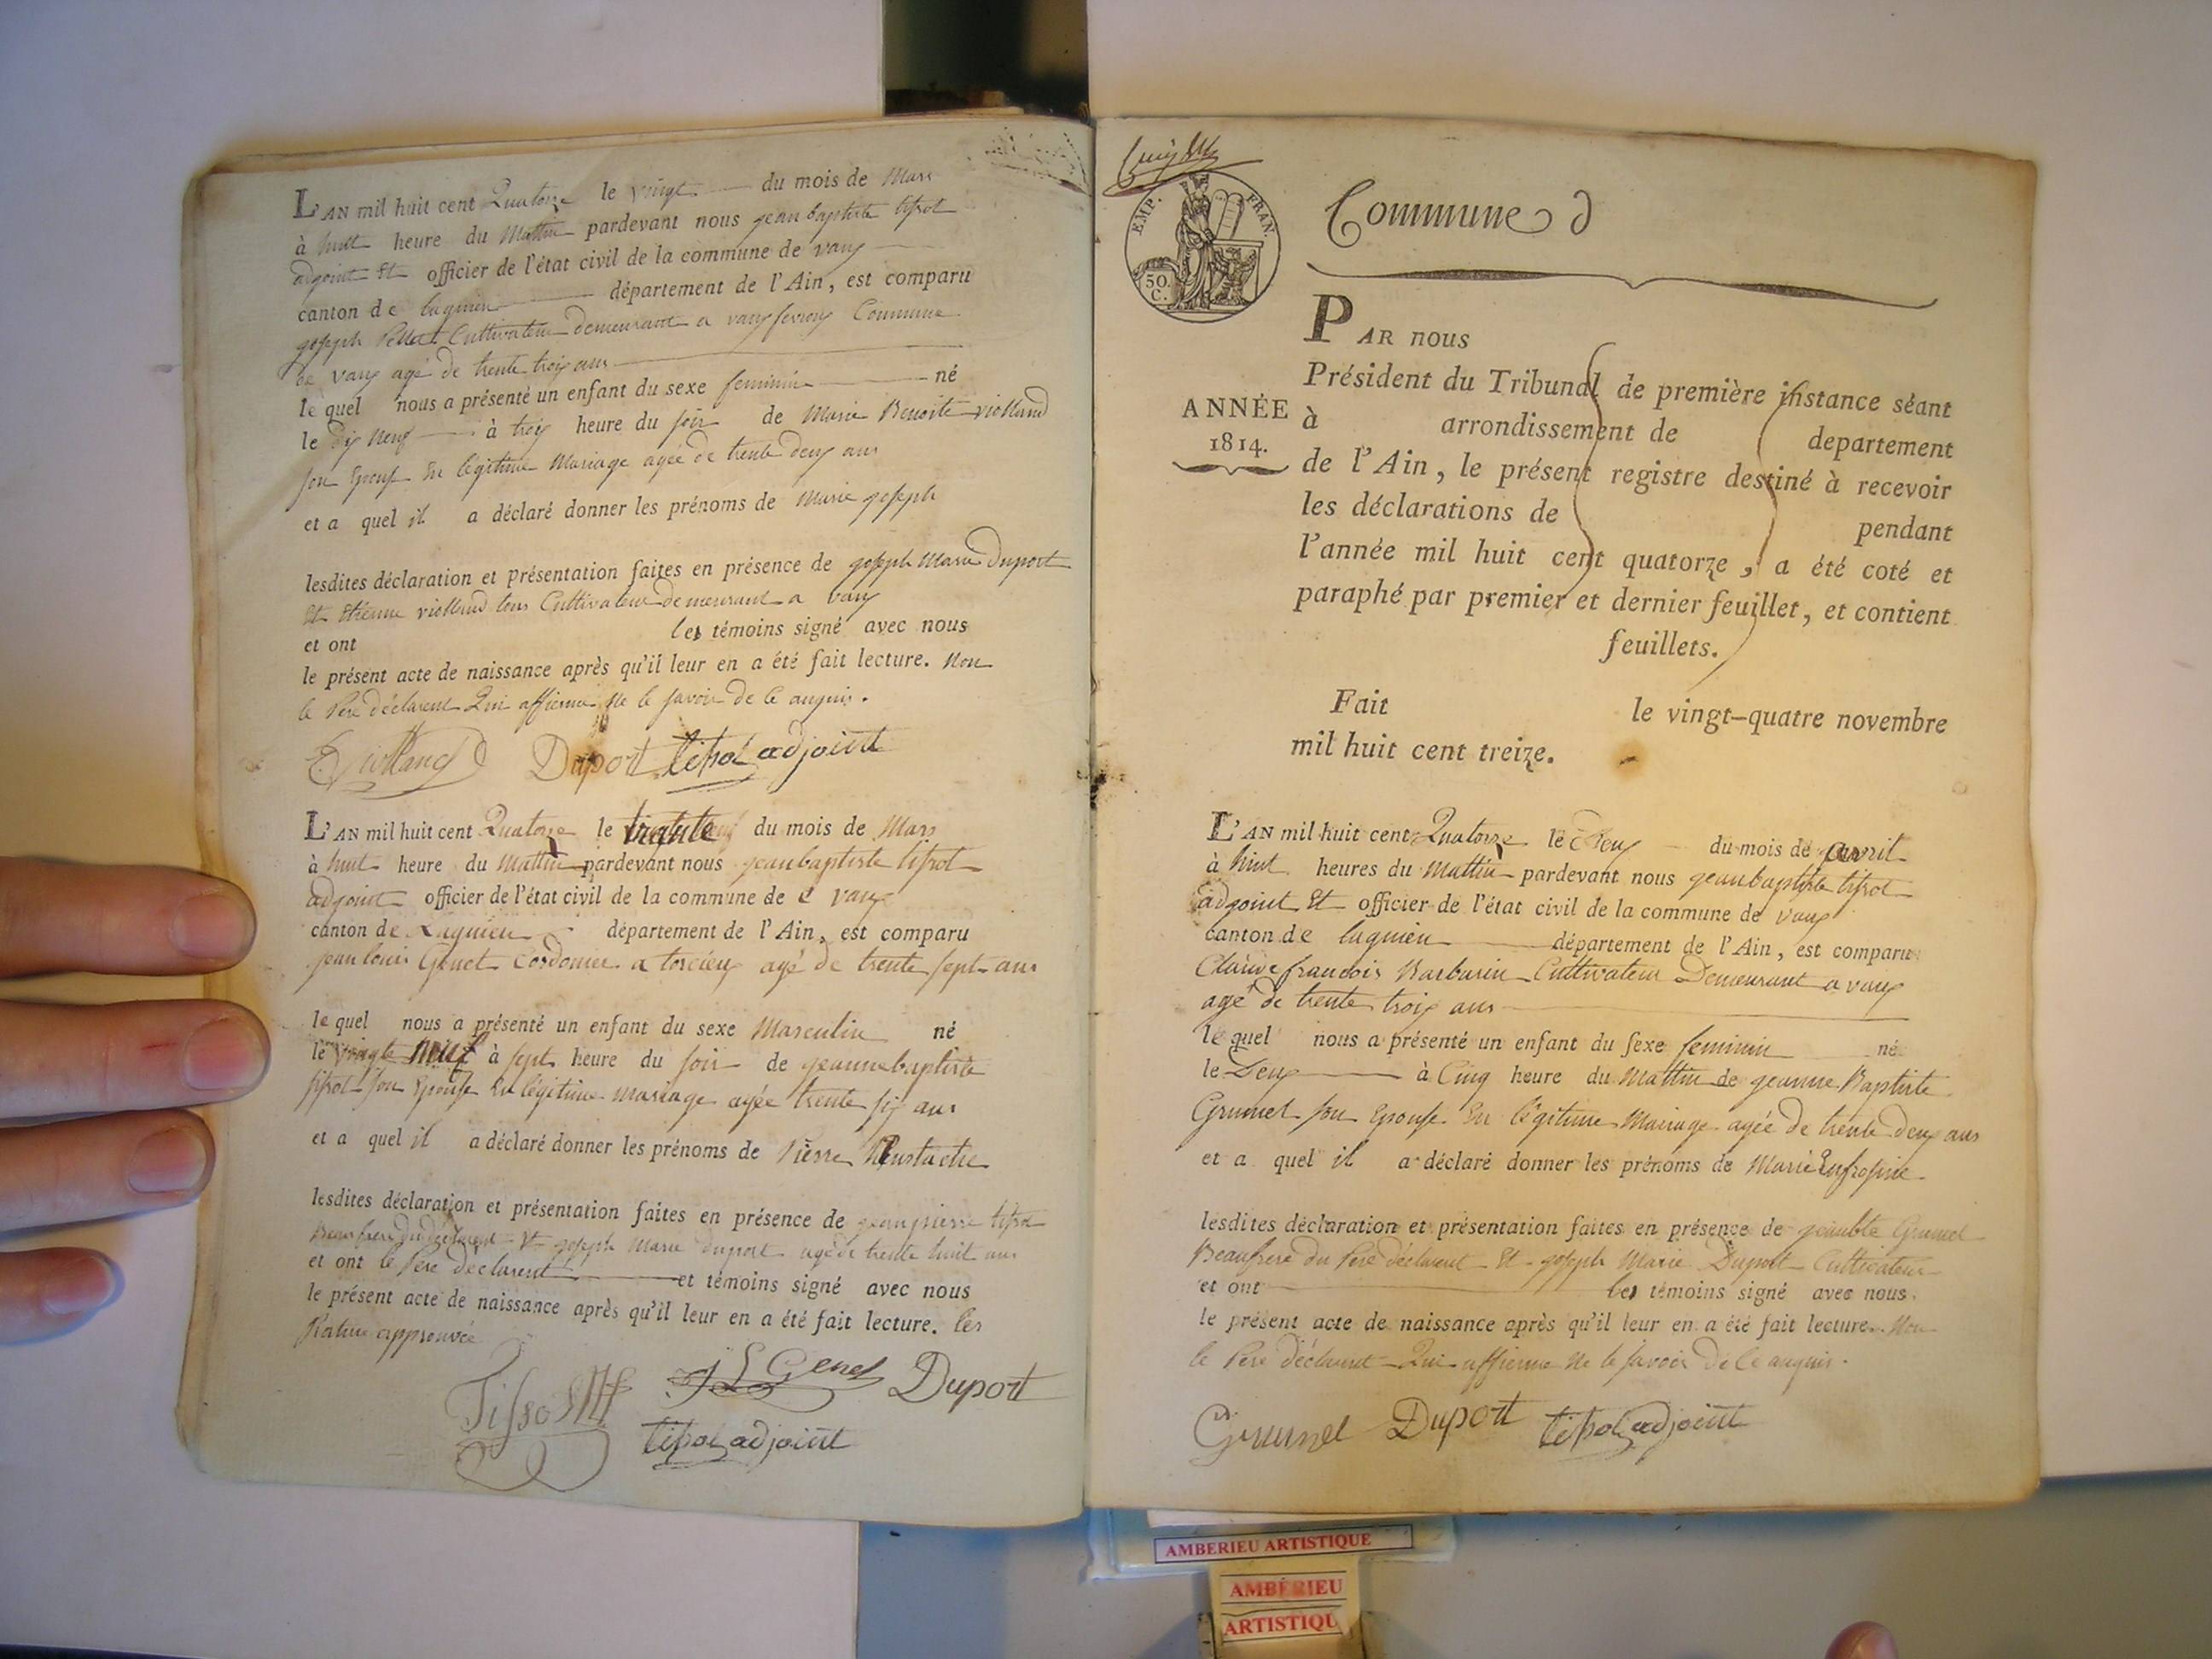 L'AN mil huit cent Quatorze le vingt du mois de Mars
à huit heure du Mattin pardevant nous jean baptiste tissot
adjoint Et officier de l'état civil de la commune de vaux
canton de lagnieu département de l'Ain, est comparu
joseph Cultivateur demeurant a vaux fevroux Commune
de vaux agé de trente troix ans
le quel nous a présenté un enfant du sexe feminin né
le dix neuf à troix heure du soir de Marie Benoite violland
son Epouse En légitime Mariage agée de trente deux ans
et a quel il a déclaré donner les prénoms de Marie joseph
lesdites déclaration et présentation faites en présence de joseph Marie Duport
Et Etienne violland tous Cultivateur demeurant a vaux
et ont les témoins signé avec nous
le présent acte de naissance après qu'il leur en a été fait lecture. Non
le Pere déclarent Qui affirme Ne le savoir de Ce anquis.
E. Violland Duport tissot adjoint
L'AN mil huit cent Quatorze le trente du mois de Mars
à huit heure du Mattin pardevant nous jean baptiste tissot
adjoint officier de l'état civil de la commune de vaux
canton de Lagnieu département de l'Ain, est comparu
jean louis Genet Cordonier a torcieux agé de trente sept ans
le quel nous a présenté un enfant du sexe Masculin né
le vingte neuf à sept heure du soir de jeanne baptiste
tissot son Epouse En légitime mariage agée trente six ans
et a quel il a déclaré donner les prénoms de Pierre Eustache
lesdites déclaration et présentation faites en présence de jean pierre tissot
Beaufrere du déclarent Et joseph Marie duport agé de trente huit ans
et ont le Pere declarent et témoins signé avec nous
le présent acte de naissance après qu'il leur en a été fait lecture. les
Rature approuvée
Tissot J L Genet Duport
tissot adjoint
EMP. FRAN.
50 C.
Commune d
PAR nous
Président du Tribunal de première instance séant
à arrondissement de departement
ANNÉE
1814.
de l'Ain, le présent registre destiné à recevoir
les déclarations de pendant
l'année mil huit cent quatorze, a été coté et
paraphé par premier et dernier feuillet, et contient
feuillets.
Fait le vingt-quatre novembre
mil huit cent treize.
L'AN mil huit cent Quatorze le Deux du mois de avril
à huit heures du Mattin pardevant nous jean baptiste tissot
adjoint Et officier de l'état civil de la commune de vaux
canton de lagnieu département de l'Ain, est comparu
Claude francois Barbarin Cultivateur Demeurant a vaux
agé de trente troix ans
le quel nous a présenté un enfant du sexe feminin né
le Deux à Cinq heure du Mattin de jeanne Baptiste
Grumet son Epouse En légitime Mariage agée de trente deux ans
et a quel il a déclaré donner les prénoms de Marie Eufrosine
lesdites déclaration et présentation faites en présence de Grumel
Beaufrere du Pere déclarent Et joseph Marie Duport Cultivateur
et ont les témoins signé avec nous
le présent acte de naissance après qu'il leur en a été fait lecture. Non
le Pere déclarent Qui affirme Ne le savoir de Ce anquis.
Grumel Duport tissot adjoint
AMBERIEU ARTISTIQUE
AMBÉRIEU
ARTISTIQU